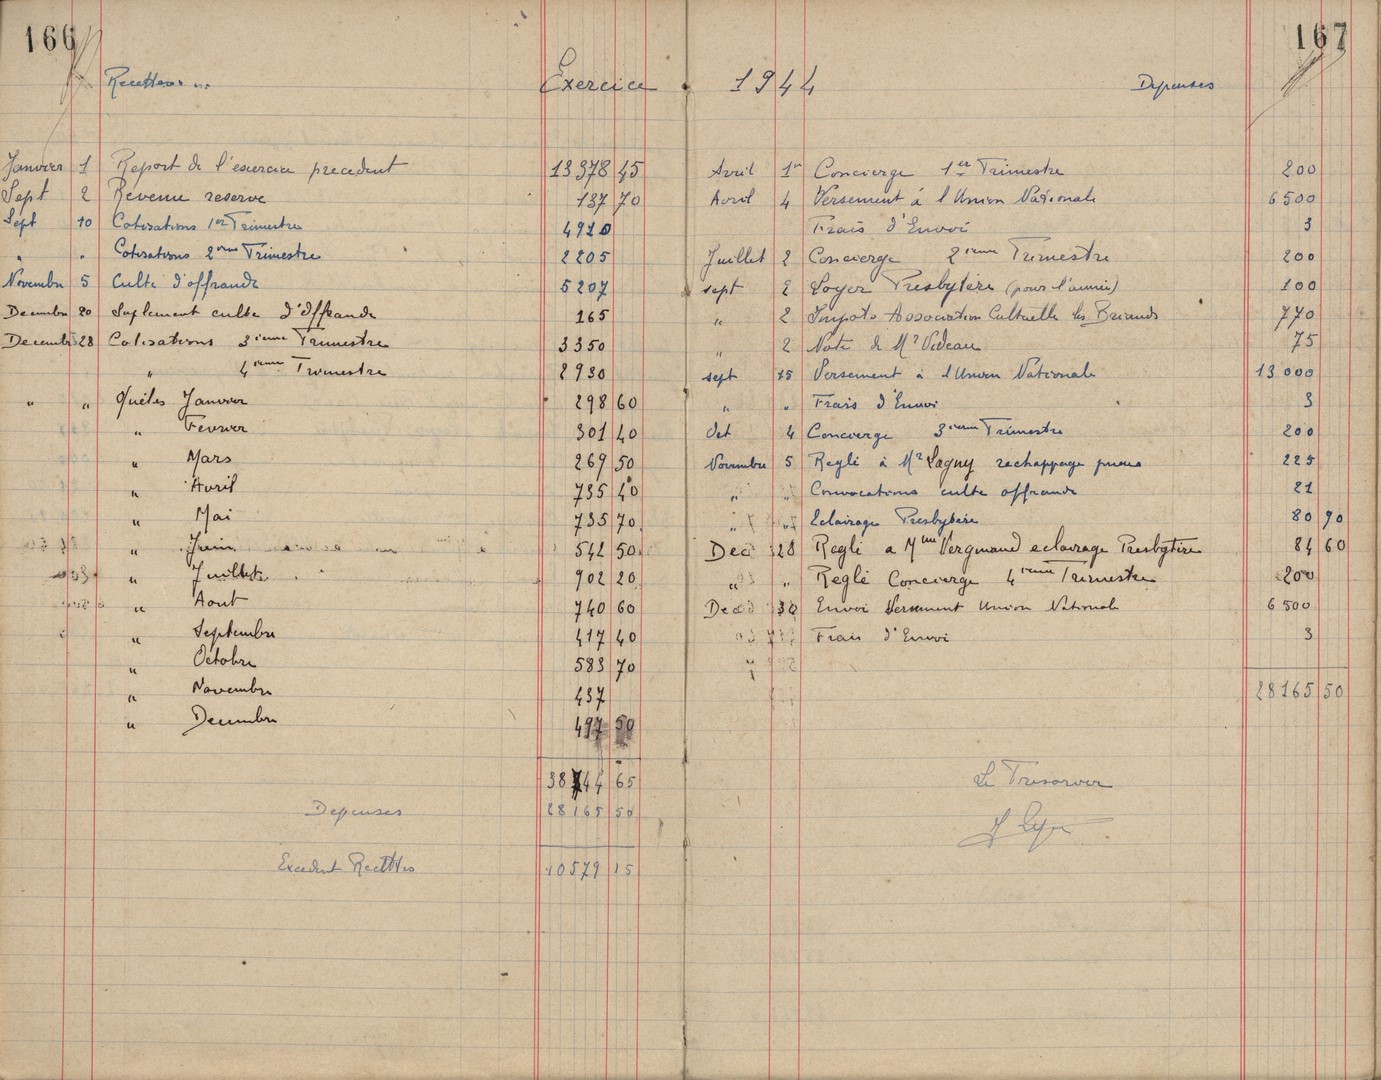 166
Recettes
Exercice
Janvier 1 Report de l'exercice precedent 13378 45
Sept 2 Revenu reserve 137 70
Sept 10 Cotisations 1er Trimestre 4910
" " Cotisations 2eme Trimestre 2205
Novembre 5 Culte d'offrande 5207
Decembre 20 Suplement culte d'Offrande 165
Decembre 28 Cotisations 3ieme Trimestre 3350
" 4ieme Trimestre 2930
" " Quêtes Janvier 298 60
" Fevrier 301 40
" Mars 269 50
" Avril 735 40
" Mai 735 70
" Juin 542 50
" Juillet 902 20
" Aout 740 60
" Septembre 417 40
" Octobre 583 70
" Novembre 437
" Decembre 497 50
38744 65
Depenses 28165 50
Excedent Recettes 10579 15
167
1944
Depenses
Avril 1er Concierge 1er Trimestre 200
Avril 4 Versement à l'Union Nationale 6500
Frais d'Envoi 3
Juillet 2 Concierge 2ieme Trimestre 200
sept 2 Loyer Presbytère (pour l'année) 100
" 2 Impots Association Cultuelle les Briands 770
" 2 Note de Mr Videau 75
sept 15 Versement à l'Union Nationale 13000
" " Frais d'Envoi 3
Oct 4 Concierge 3ieme Trimestre 200
Novembre 5 Reglé à Mr Lagny rechappage pneus 225
" " Convocations culte offrande 21
" " Eclairage Presbytère 80 90
Dec 28 Reglé a Mme Vergniaud eclairage Presbytère 84 60
" " Reglé Concierge 4ieme Trimestre 200
Dec 30 Envoi Versement Union Nationale 6500
Frais d'Envoi 3
28165 50
Le Tresorier